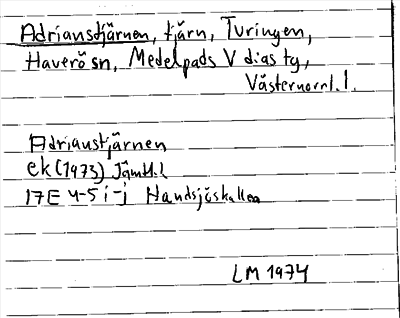 Adrianstjärnen, tjärn, Turingen,
Haverö sn, Medelpads V dias tg,
Västernorrl. l.
Adrianstjärnen
ek (1973) Jämtl. l
17E 4-5 i-j Handsjöskallen
LM 1974